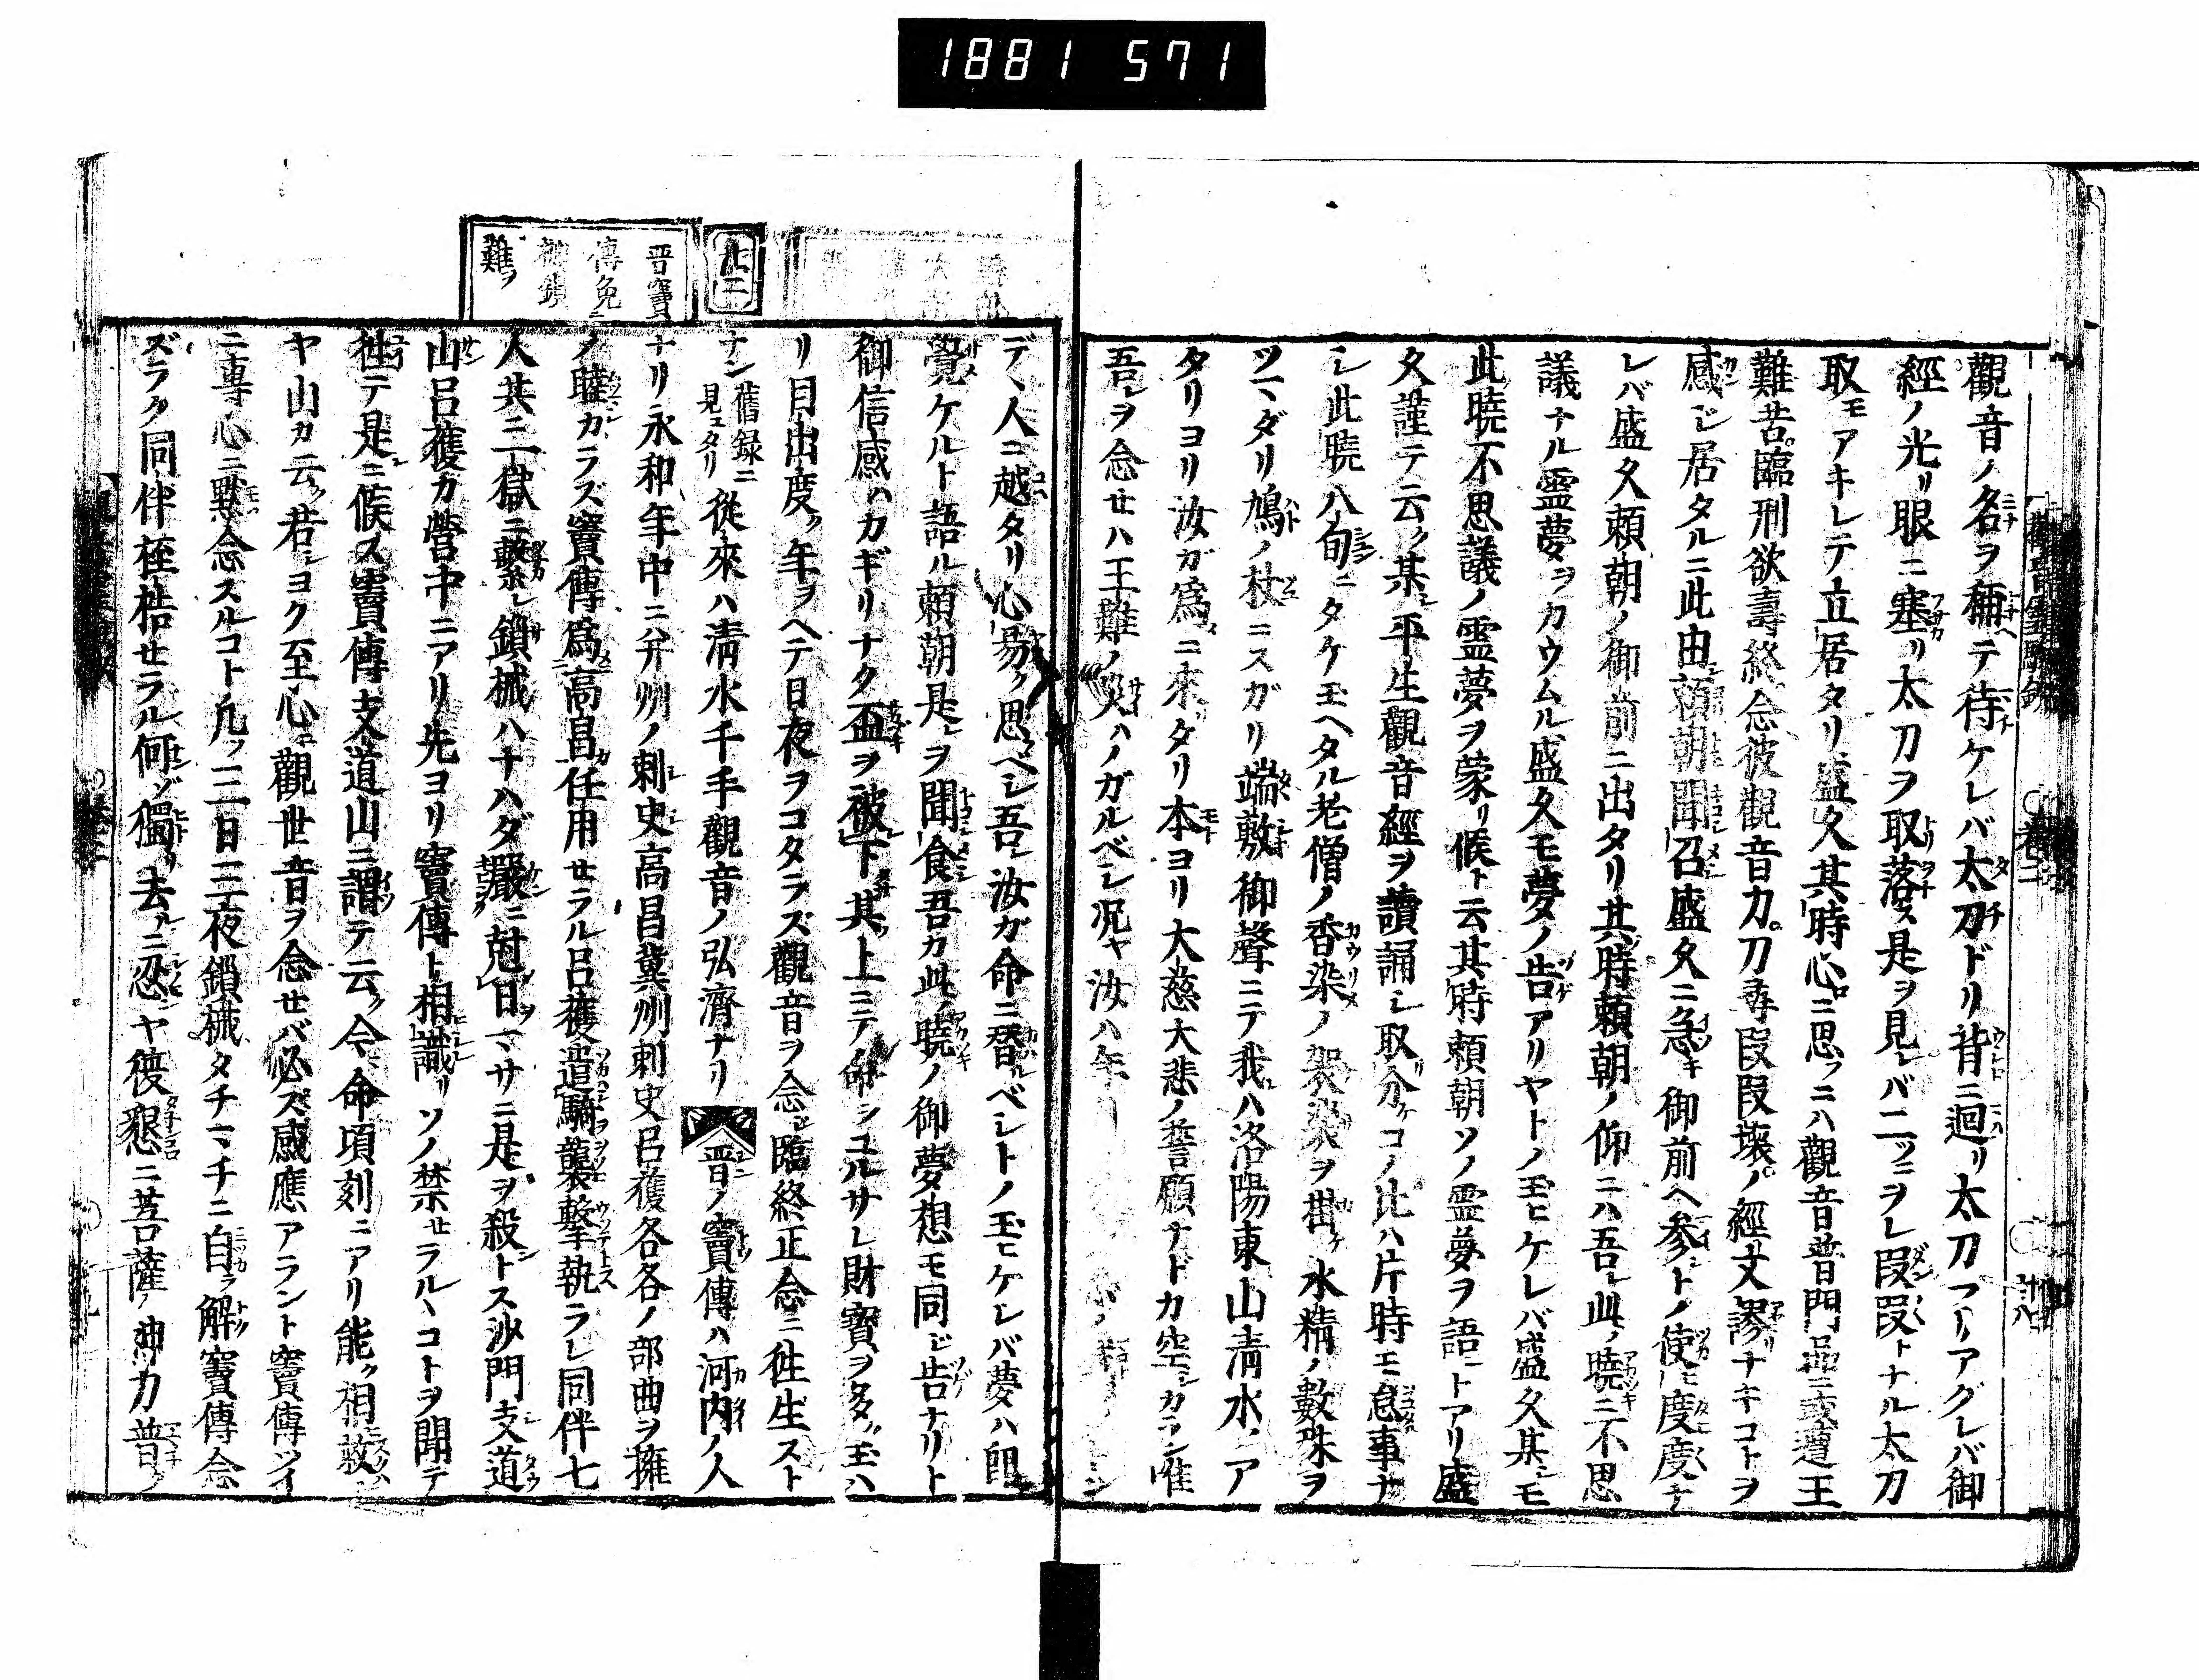 1881 571
觀音ノ名ヲ稱テ待ケレバ太刀ドリ背ニ迴リ太刀フーアグレバ御
經ノ光リ眼ニ塞リ太刀ヲ取落ス是ヲ見レバ二ツニヲレ段段トナル太刀
取モアキレテ立居タリ盛久其時心ニ思フニハ觀音普門品ニ或遭王
難苦臨刑欲壽終念彼觀音力刀尋段段壞ノ經文謬ナキコトヲ
感ジ居タルニ此由頼朝聞召盛久ニ急キ御前ヘ參トノ使ヒ度度ナ
レバ盛久頼朝ノ御前ニ出タリ其時頼朝ノ仰ニハ吾レ此ノ曉ニ不思
議ナル靈夢ヲカウムル盛久モ夢ノ告アリヤトノ玉ヒケレバ盛久某モ
此曉不思議ノ霊夢ヲ蒙リ候ト云其時頼朝ソノ霊夢ヲ語トアリ盛
久謹テ云ク某シ平生觀音經ヲ讀誦シ取分ケコノ比ハ片時モ怠事ナ
シ此曉八旬ニタケ玉ヘタル老僧ノ香染ノ袈裟ヲ掛ケ水精ノ數珠ヲ
ツマダリ鳩ノ杖ニスガリ端敷御聲ニテ我ハ洛陽東山清水ノア
タリヨリ汝ガ爲ニ來タリ本ヨリ大慈大悲ノ誓願ナドカ空シカラン唯
吾レヲ念セハ王難ノ災ハノガルベシ况ヤ汝ハ年
九二
晋竇
傳免
械鎖
難ヲ
デヽ人ニ越タリ心易ク思ベシ吾レ汝ガ命ニ替ルベシトノ玉ヒケレバ夢ハ即
覺ケルト語ル頼朝是レヲ聞食吾カ此ノ曉ノ御夢想モ同ジ告ナリト
御信感ハカギリナク盃ヲ被下其上ニテ命シユルサレ財寳ヲ多ク玉ハ
リ目出度ク年ヲヘテ日夜ヲコタラズ觀音ヲ念ジ臨終正念ニ徃生スト
ナン舊録ニ見ヱタリ從來ハ清水千手觀音ノ弘濟ナリ 晋ノ竇傳ハ河内ノ人
ナリ永和年中ニ并州ノ刺史高昌冀州刺史呂獲各各ノ部曲ヲ擁
ノ睦カラズ竇傳爲高昌任用セラル呂獲遣騎襲撃執ラレ同伴七
人共ニ一獄ニ繋レ鎖械ハナハダ嚴ニ尅日マサニ是ヲ殺トス沙門支道
山呂獲カ營中ニアリ先ヨリ竇傳ト相識リソノ禁セラルヽコトヲ聞テ
徃テ是ニ候ス竇傳支道山ニ謂テ云ク今命頃刻ニアリ能ク相救ン
ヤ山カ云ク若シヨク至心ニ觀世音ヲ念セバ必ズ感應アラント竇傳ツイ
ニ專心ニ默念スルコト凡ソ三日三夜鎖械タチマチニ自ラ解竇傳念
ズラク同伴桎梏セラル何ゾ獨リ去ルニ忍ヤ復懇ニ菩薩ノ神力普ク